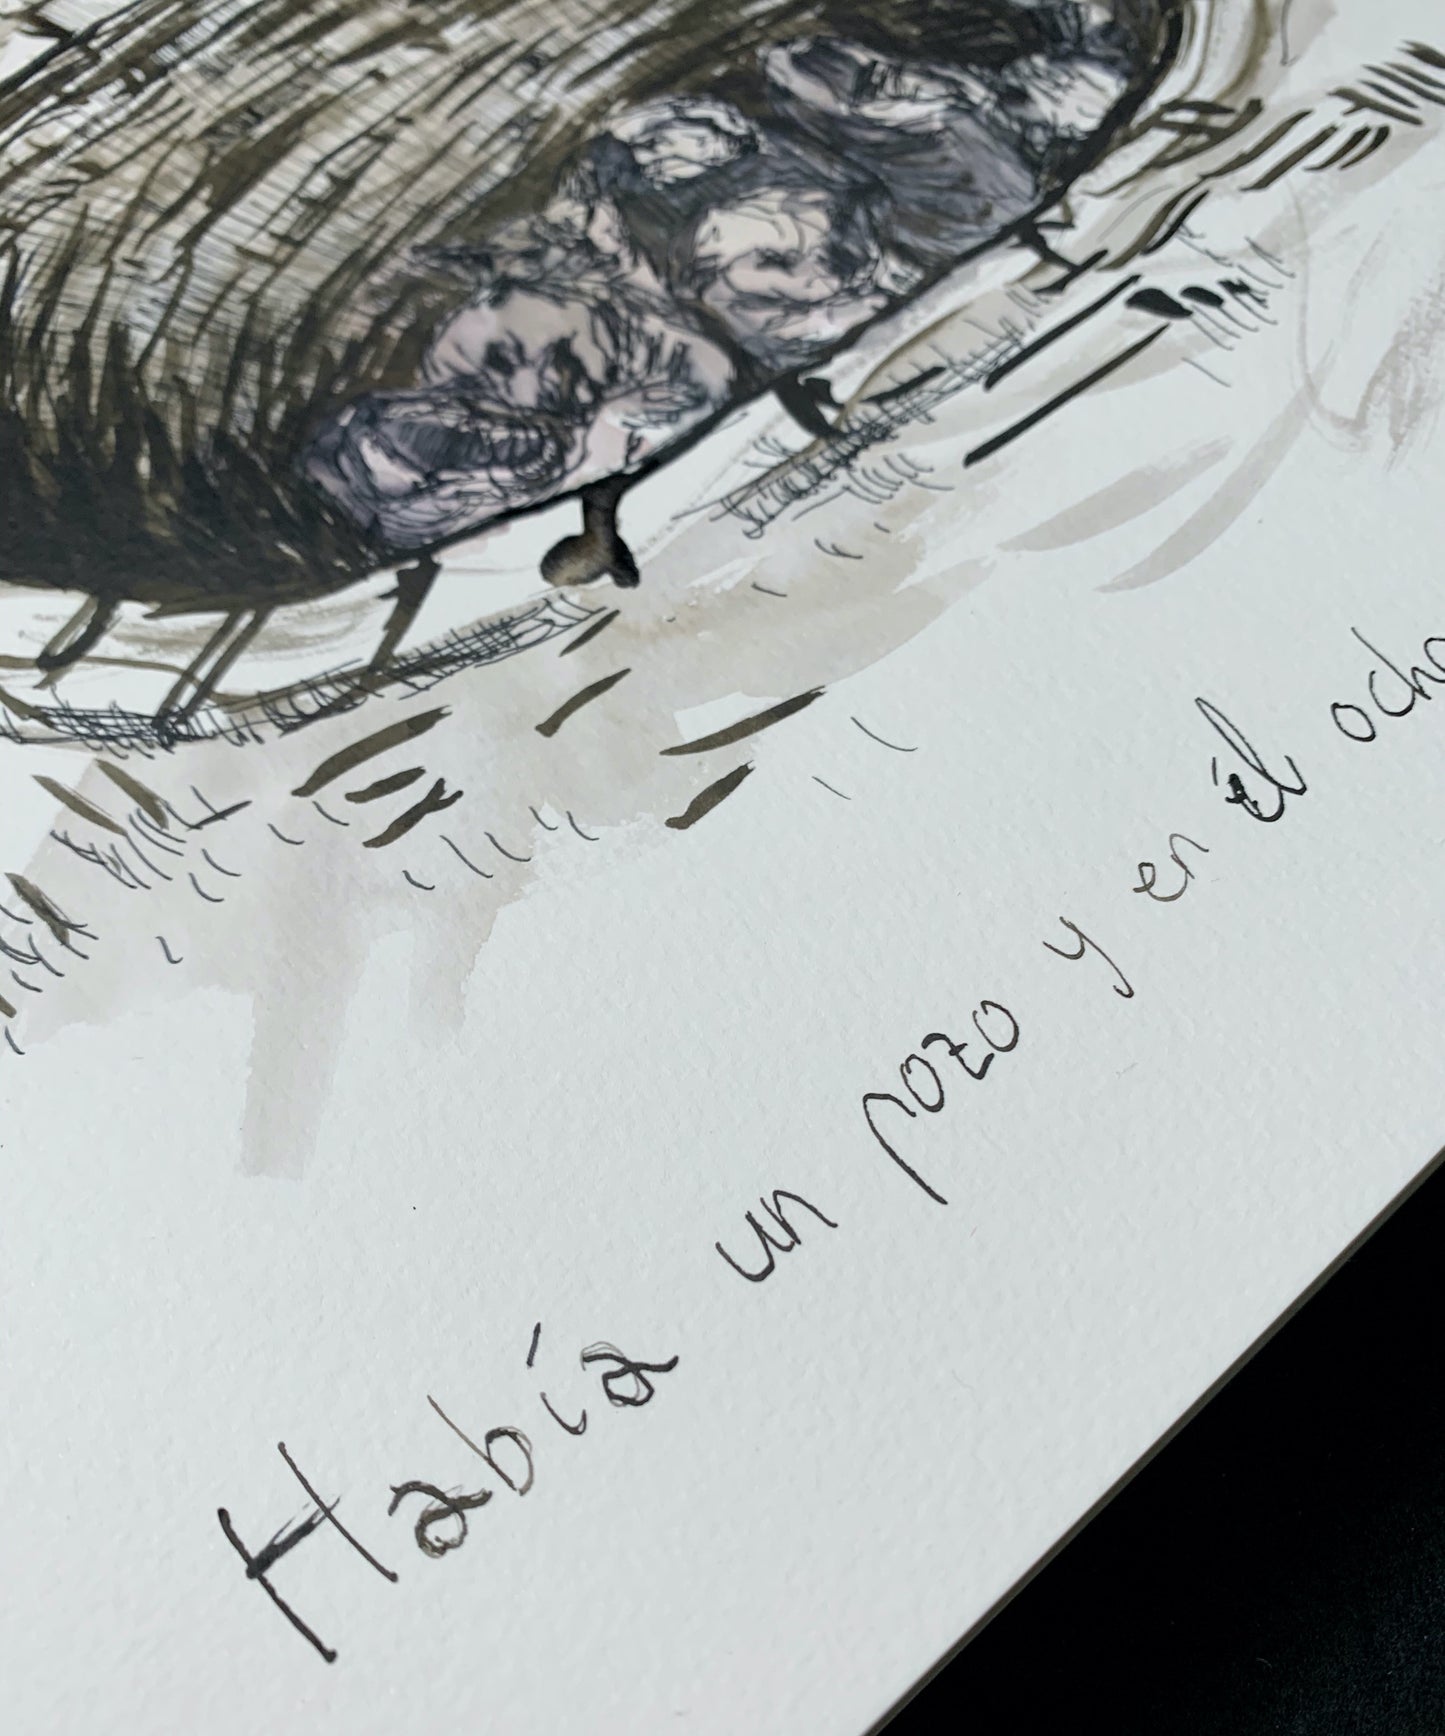 Había un pozo y en él ocho